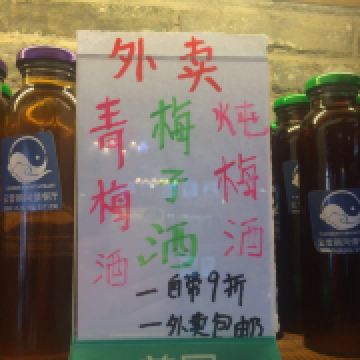 外卖
青梅酒
梅子酒
炖梅酒
一自带9折
一外卖包邮